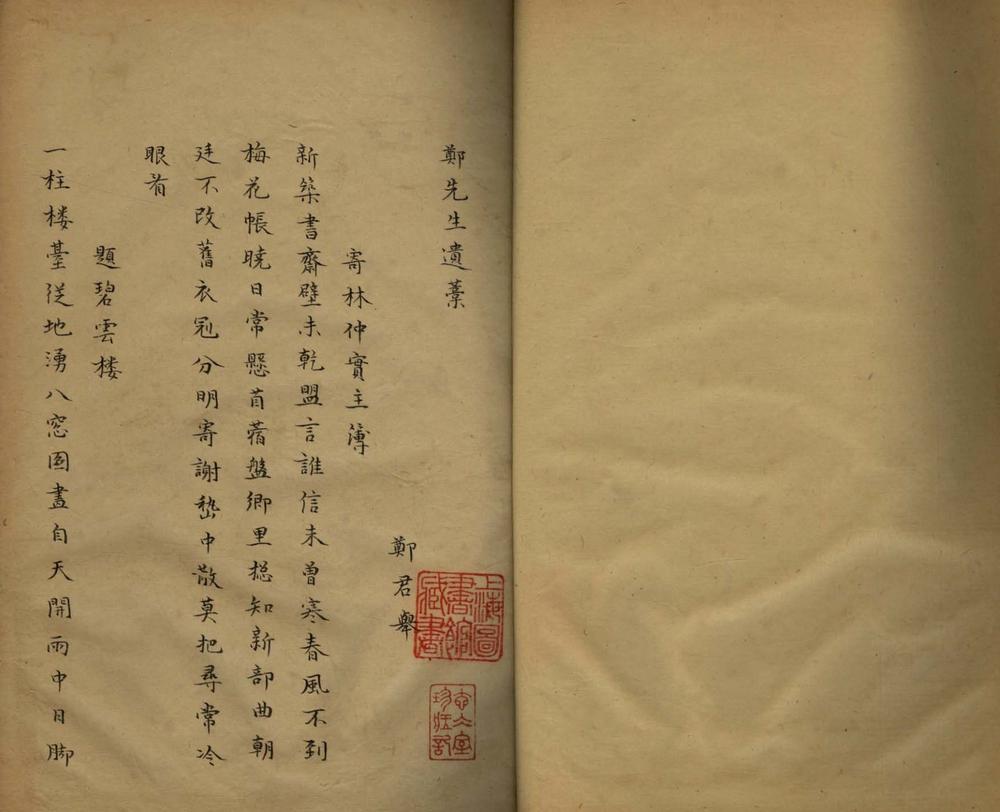 鄭先生遺藁
鄭君舉
寄林仲實主簿
新築書齋壁未乾盟言誰信未曾寒春風不到
梅花帳曉日常懸苜蓿盤鄉里揔知新部曲朝
廷不改舊衣冠分明寄謝嵇中散莫把尋常冷
眼看
題碧雲楼
一柱楼臺従地湧八窓图畫自天開雨中日脚
上海圖書館藏書